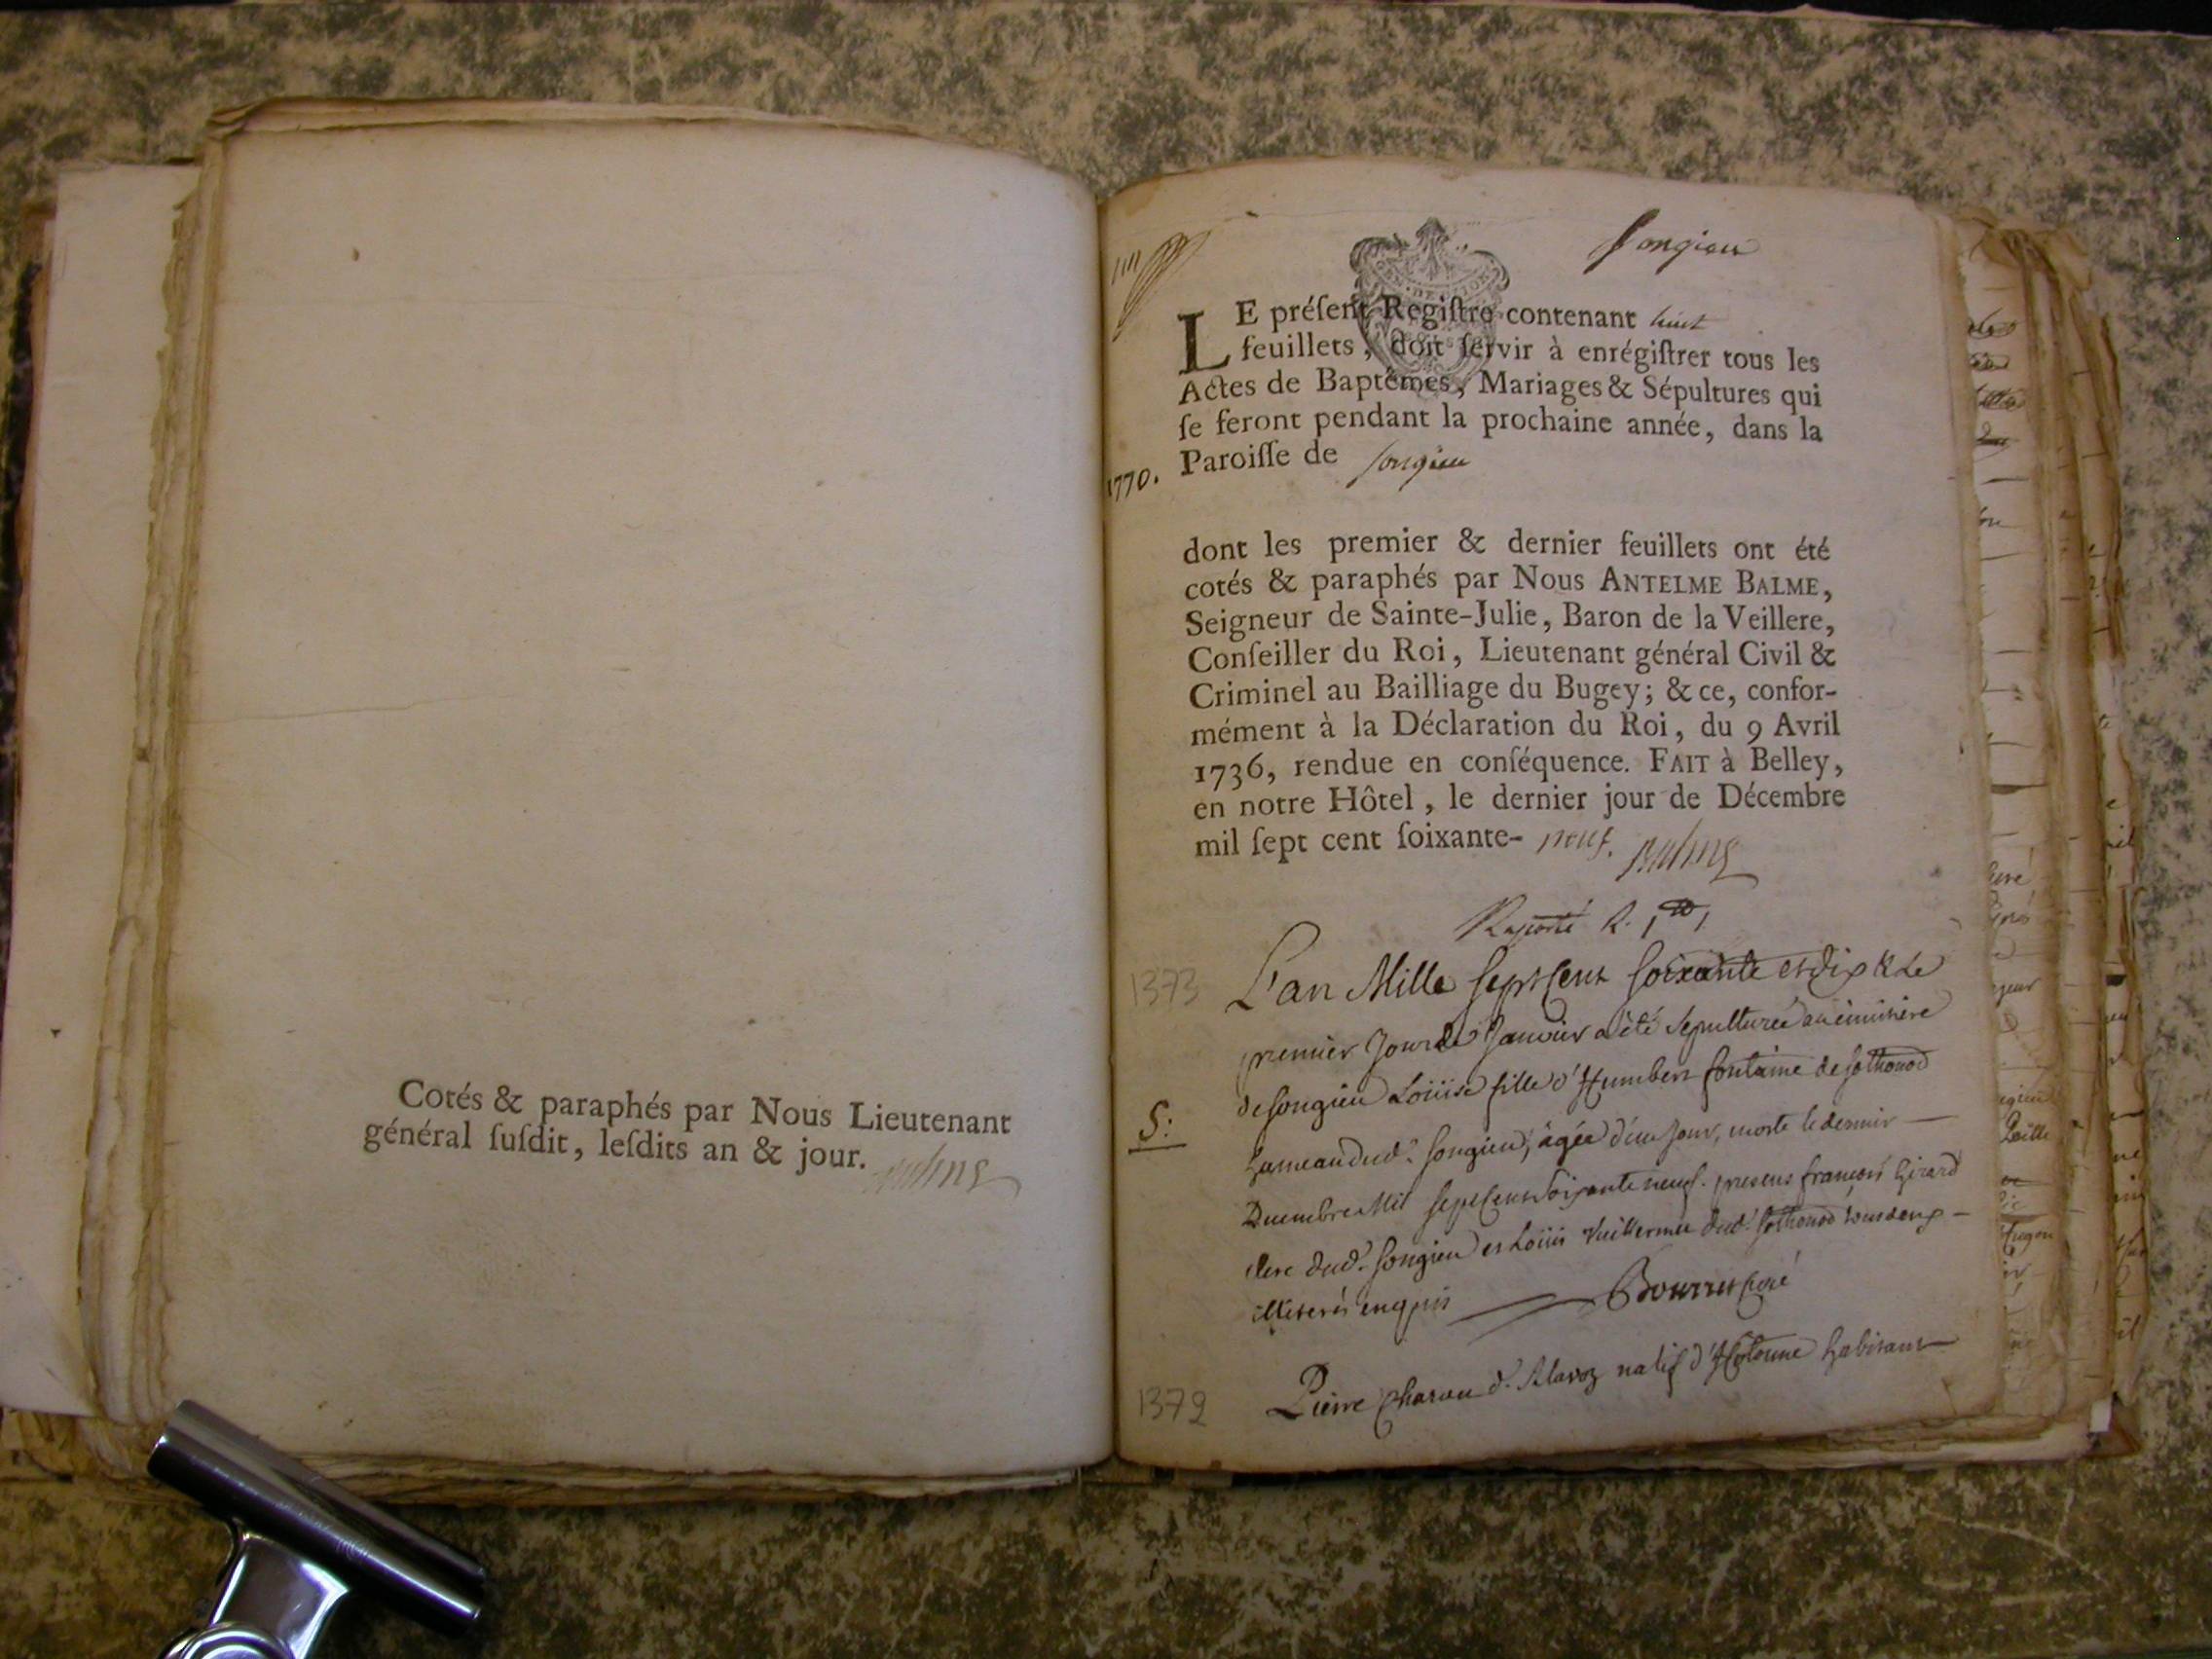 Cotés & paraphés par Nous Lieutenant
général ſuſdit, leſdits an & jour.
Balme
Songieu
LE préſent Regiſtre contenant huit
feuillets, doit ſervir à enrégiſtrer tous les
Actes de Baptêmes, Mariages & Sépultures qui
ſe feront pendant la prochaine année, dans la
1770. Paroiſſe de Songieu
dont les premier & dernier feuillets ont été
cotés & paraphés par Nous ANTELME BALME,
Seigneur de Sainte-Julie, Baron de la Veillere,
Conſeiller du Roi, Lieutenant général Civil &
Criminel au Bailliage du Bugey; & ce, confor-
mément à la Déclaration du Roi, du 9 Avril
1736, rendue en conſéquence. FAIT à Belley,
en notre Hôtel, le dernier jour de Décembre
mil ſept cent ſoixante- neuf. Balme
1373 L'an Mille Sept Cent Soixante et dix & Le
premier Jour de Janvier a été Sepulturée au cimitière
de Songieu Loüise fille d'Humbert fontaine de Sothonod
S: hameau dud. Songieu, agée d'un Jour, morte le dernier
Decembre Mil Sept Cent Soixante neuf. presens françois Girard
clerc dud. Songieu et Loüis Vuillermet dud. Sothonod tous deux
illiterés enquis Bourret Curé
1372 Pierre natif d'Hotonne habitant